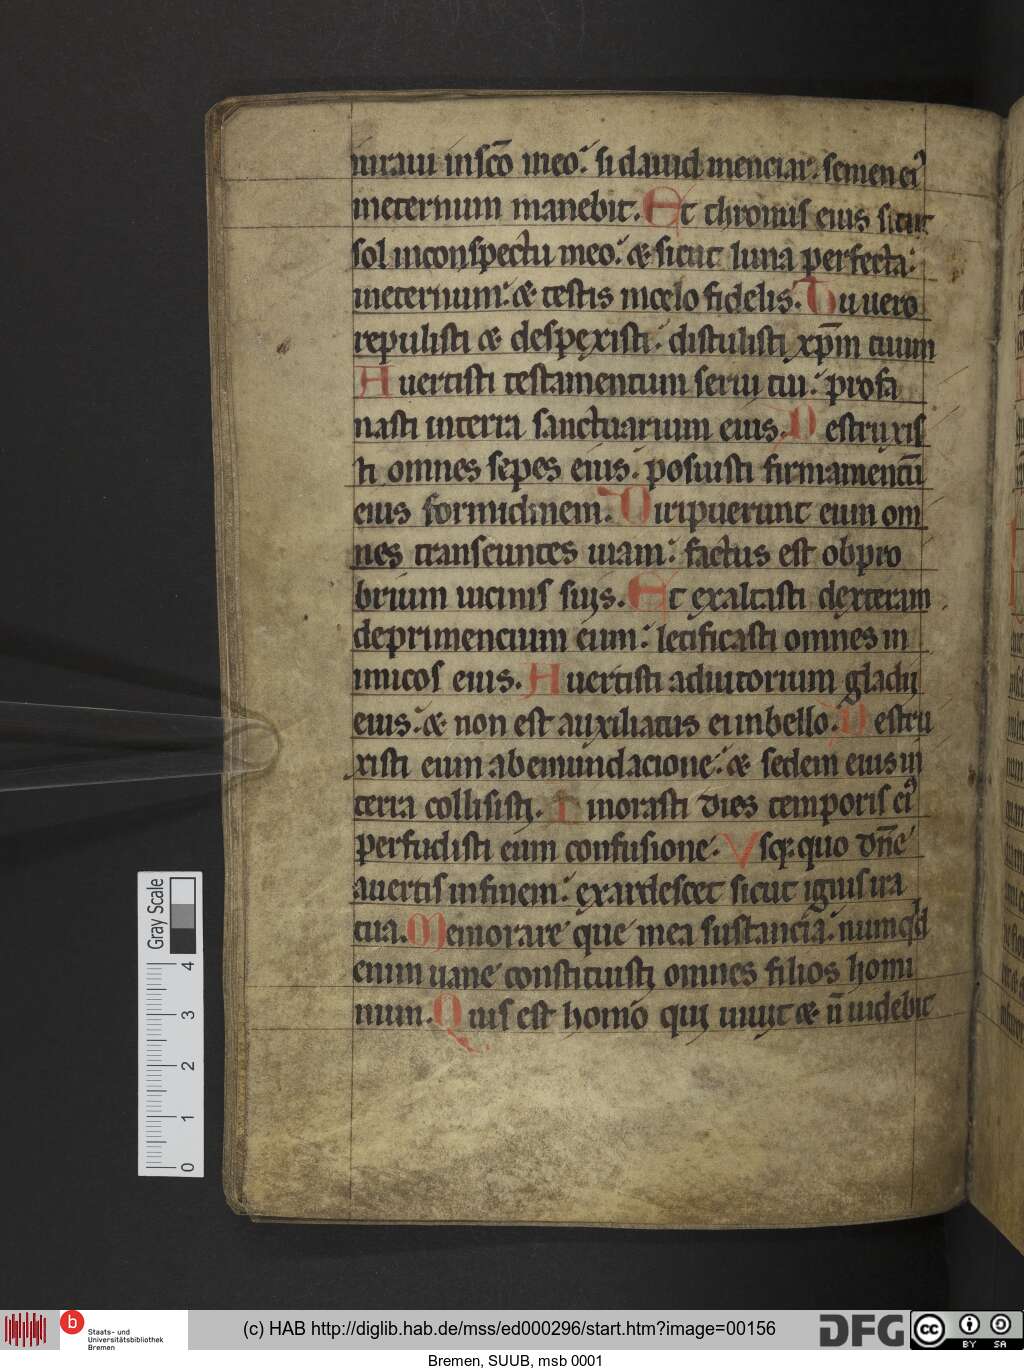 iuraui in scō meo: si dauid menciar: semen ei⁹
ineternum manebit. Et thronus eius sicut
sol inconspectu meo: & sicut luna perfecta:
ineternum: & testis incelo fidelis. Tu uero
repulisti & despexisti: distulisti xp̄m tuum
Auertisti testamentum serui tui: profa
nasti interra sanctuarium eius. Destruxis
ti omnes sepes eius: posuisti firmamentū
eius formidinem. Diripuerunt eum om
nes transeuntes uiam: factus est obpro
brium uicinis suis. Et exaltasti dexteram
deprimencium eum: letificasti omnes in
imicos eius. Auertisti adiutorium gladii
eius: & non est auxiliatus ei inbello. Destru
xisti eum abemundacione: & sedem eius in
terra collisisti. Minorasti dies temporis ei⁹
perfudisti eum confusione. Vsq; quo dn̄e
auertis infinem: exardescet sicut ignis ira
tua. Memorare que mea sustancia: numqd
enim uane constituisti omnes filios homi
num. Quis est homo qui uiuit & n̄ uidebit
Gray Scale
4
3
2
1
0
b
Staats- und
Universitätsbibliothek
Bremen
(c) HAB http://diglib.hab.de/mss/ed000296/start.htm?image=00156
DFG
cc
BY SA
Bremen, SUUB, msb 0001